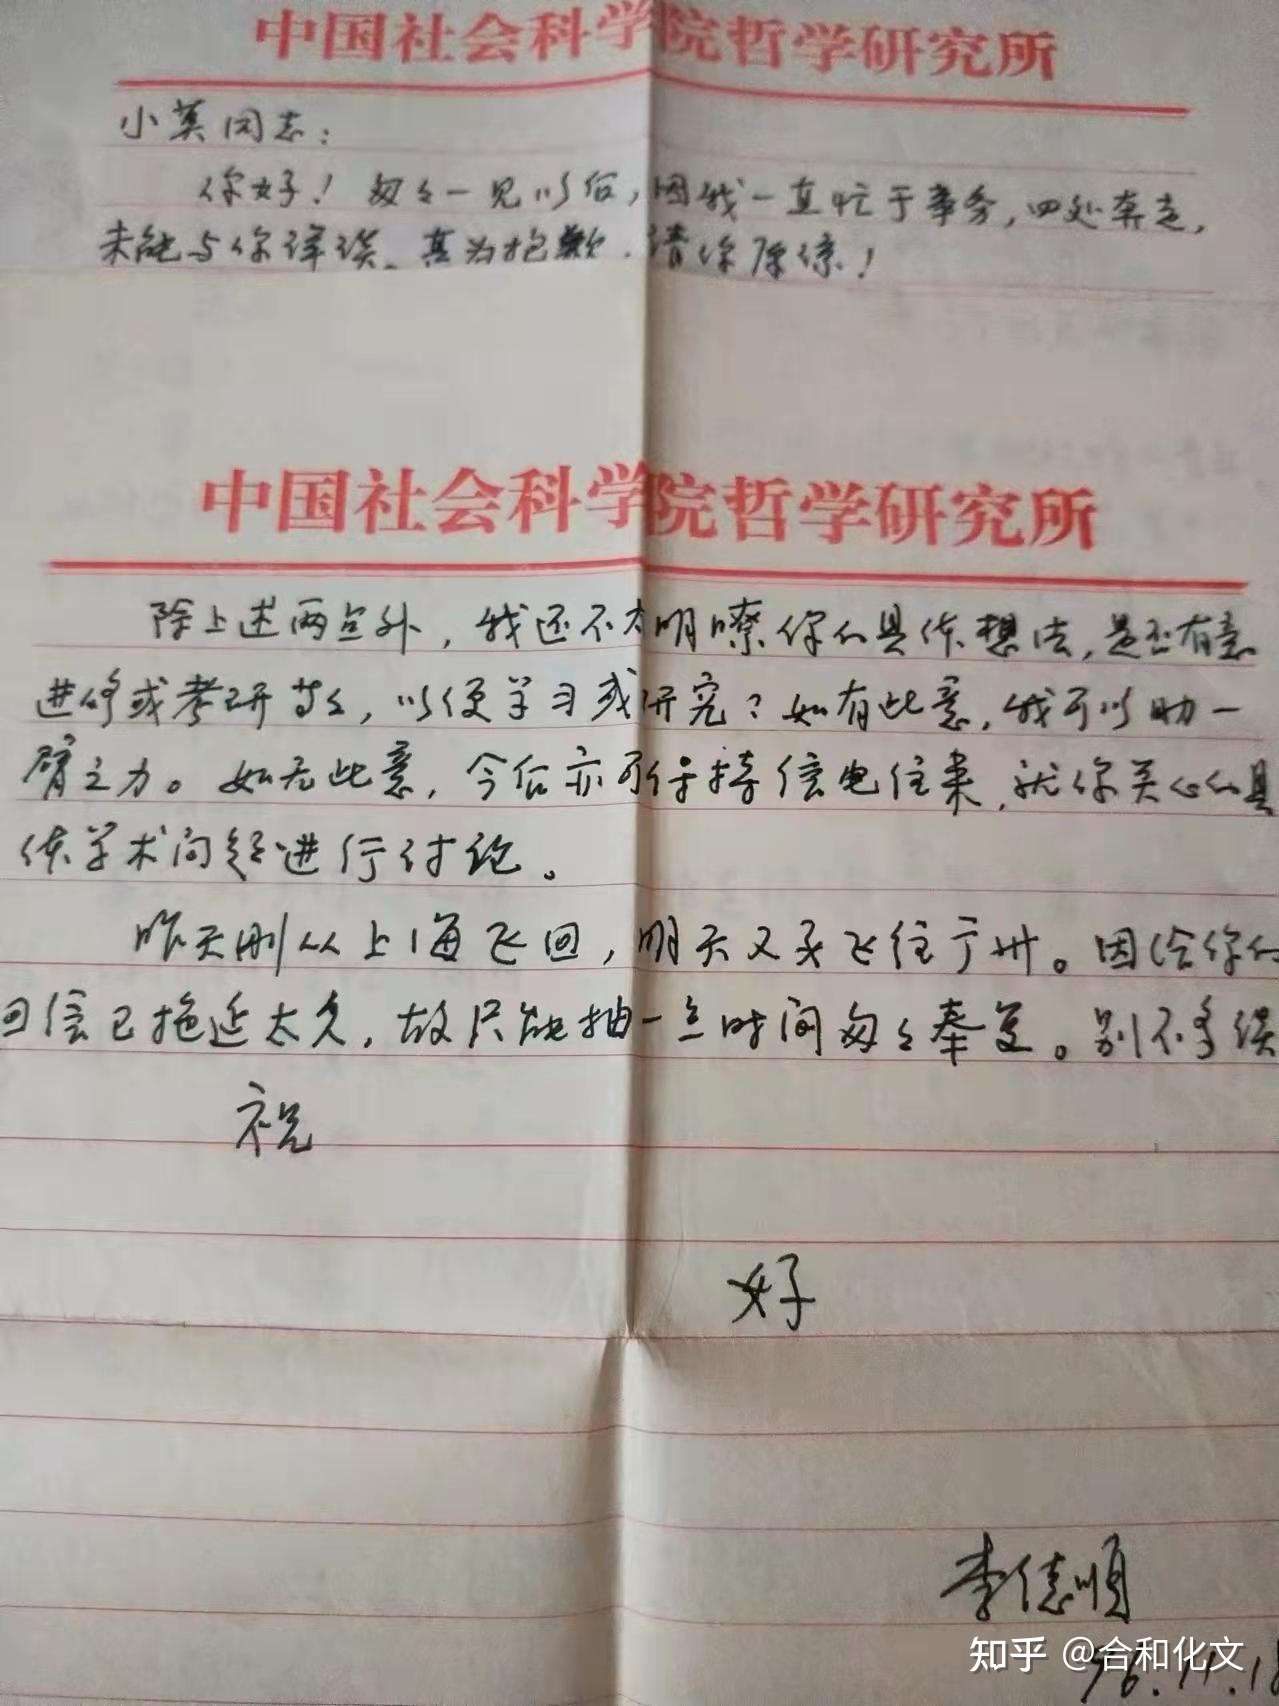 中国社会科学院哲学研究所
小英同志：
你好！匆匆一见以后，因我一直忙于事务，四处奔走，
未能与你详谈、甚为抱歉．请你原谅！
中国社会科学院哲学研究所
除上述两点外，我还不太明暸你的具体想法，是否有意
进修或考研等等，以便学习或研究？如有此意，我可以助一
臂之力。如无此意，今后亦可保持信电往来，就你关心的具
体学术问题进行讨论。
昨天刚从上海飞回，明天又要飞往广州。因给你的
回信已拖延太久，故只能抽一点时间匆匆奉复。别不多谈
祝
好
李德顺
96.11.18
知乎 @合和化文